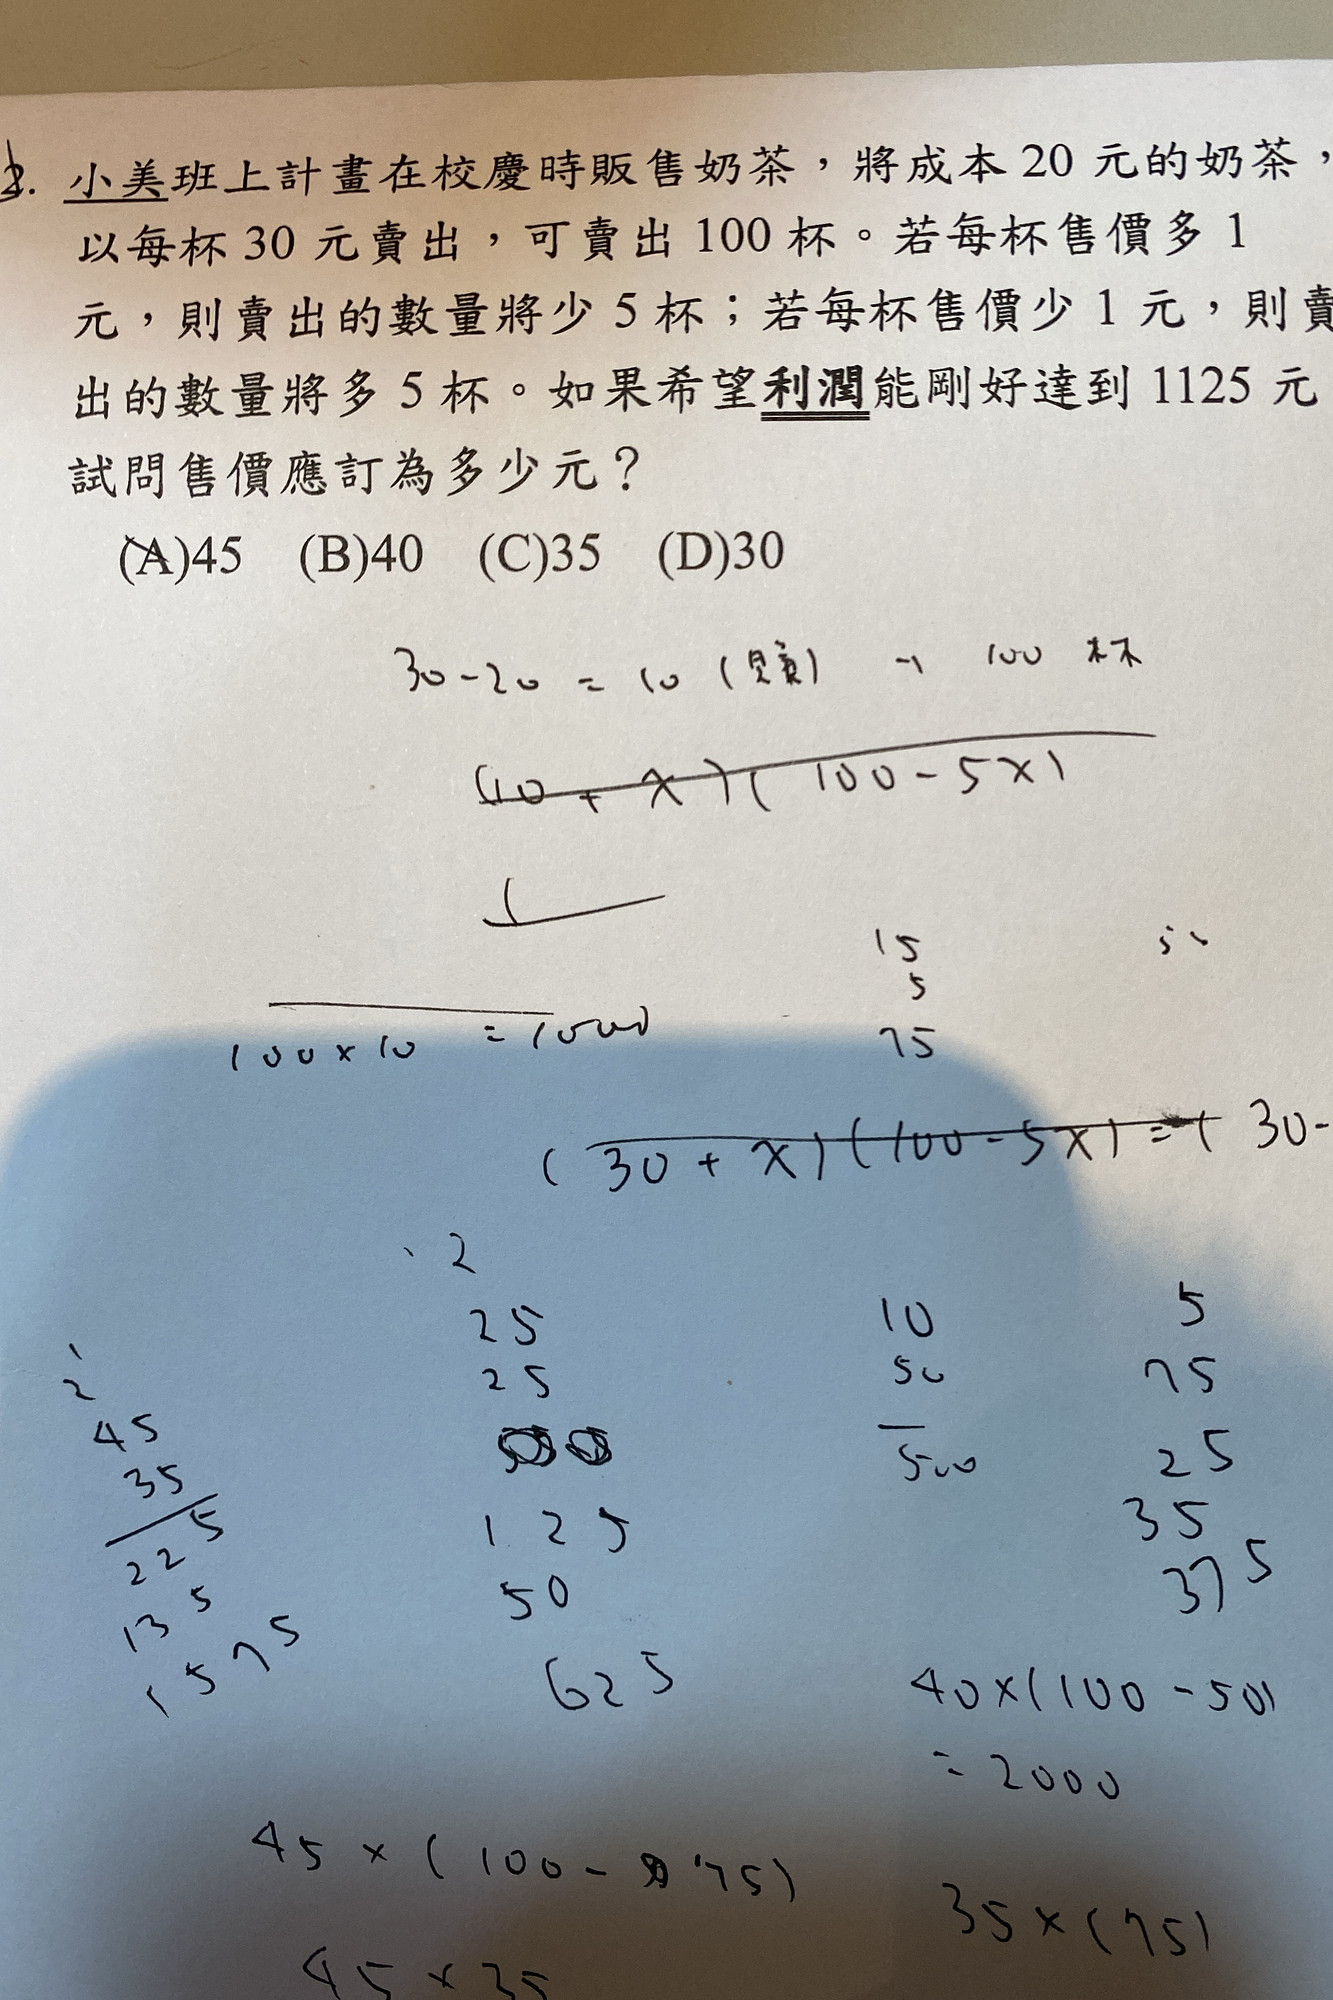 小美班上計畫在校慶時販售奶茶，將成本 20 元的奶茶，
以每杯 30 元賣出，可賣出 100 杯。若每杯售價多 1
元，則賣出的數量將少 5 杯；若每杯售價少 1 元，則賣
出的數量將多 5 杯。如果希望利潤能剛好達到 1125 元
試問售價應訂為多少元？
(A)45 (B)40 (C)35 (D)30
30-20 = 10 (賺) → 100 杯
(10 + x)(100-5x)
15
5
75
100×10 = 1000
(30 + x)(100-5x) = (30-
2
25
25
125
50
625
10
50
500
5
75
25
35
375
2
45
35
225
135
1575
40×(100-50)
= 2000
45×(100-75)
35×(75)
45×35